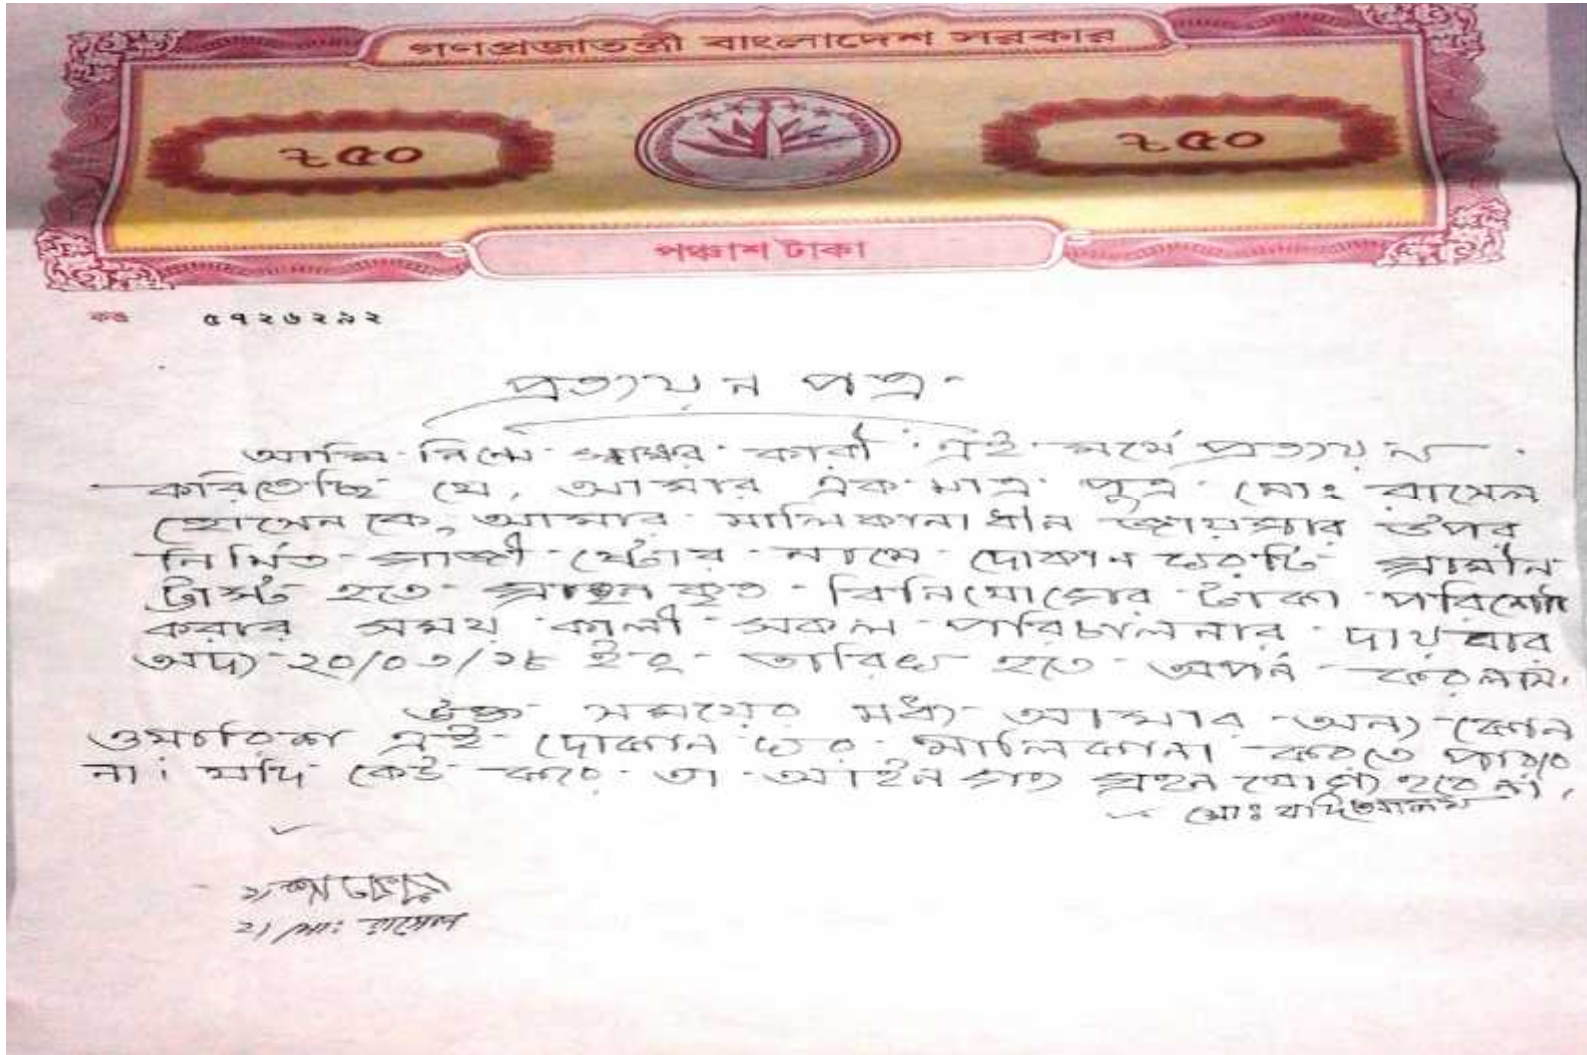 গণপ্রজাতন্ত্রী বাংলাদেশ সরকার
৳৫০ ৳৫০
পঞ্চাশ টাকা
কঙ ৫৭২৬২৯২
প্রত্যয়ন পত্র
আমি নিম্নে স্বাক্ষর কারী এই মর্মে প্রত্যয়ন
করিতেছি যে, আমার এক মাত্র পুত্র মোঃ রাসেল
হোসেন কে, আমার মালিকানাধীন জায়গার উপর
নির্মিত গাজী ষ্টোর নামে দোকান ঘরটি গ্রামীন
ট্রাস্ট হতে গ্রহন কৃত বিনিয়োগের টাকা পরিশোধ
করার সময় কালী সকল পরিচালনার দায়ভার
অদ্য ২০/০৩/১৮ ইং তারিখ হতে অর্পন করলাম।
উক্ত সময়ের মধ্য আমার অন্য কোন
ওয়ারিশ এই দোকান ঘর মালিকানা করতে পারবে
না। যদি কেউ করে তা আইন গত গ্রহন যোগ্য হবে না।
মোঃ
১)
২) মোঃ রাসেল